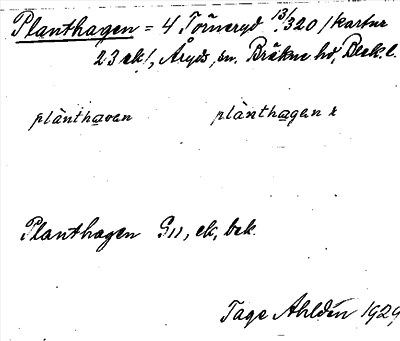 Planthagen = 4 Törneryd 13/320 / kartne
23 ek/, Åryds sn. Bräkne hd, Blek. l.
plànthavan plànthagen r
Planthagen G11, ek, bek.
Tage Ahldén 1929